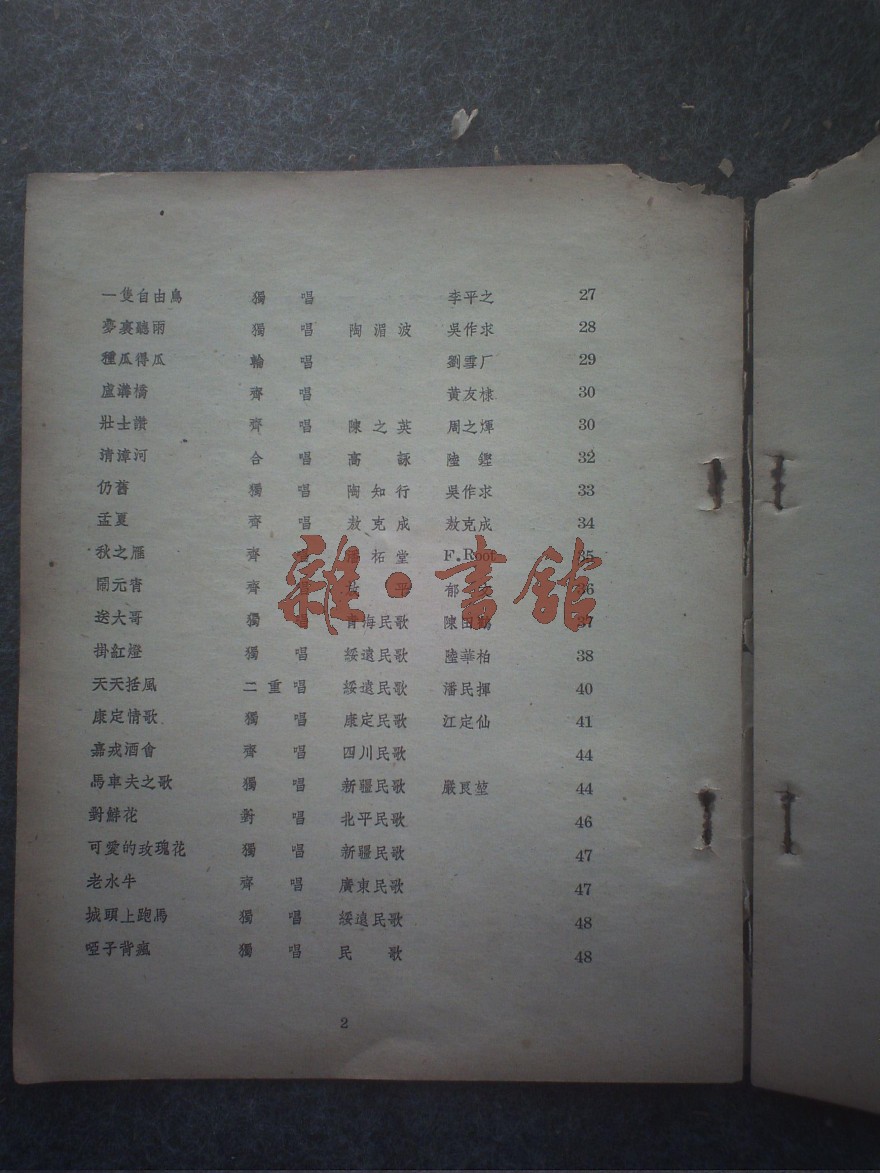 一隻自由鳥 獨唱 李平之 27
夢裏聽雨 獨唱 陶湄波 吳作求 28
種瓜得瓜 輪唱 劉雪厂 29
盧溝橋 齊唱 黃友棣 30
壯士讚 齊唱 陳之英 周之煇 30
清漳河 合唱 高詠 陸鏗 32
仍舊 獨唱 陶知行 吳作求 33
孟夏 齊唱 敖克成 敖克成 34
秋之雁 齊唱 拓堂 F. Root 35
鬧元宵 齊唱 平 郁 36
送大哥 獨唱 青海民歌 陳田鶴 37
掛紅燈 獨唱 綏遠民歌 陸華柏 38
天天括風 二重唱 綏遠民歌 潘民揮 40
康定情歌 獨唱 康定民歌 江定仙 41
嘉戎酒會 齊唱 四川民歌 44
馬車夫之歌 獨唱 新疆民歌 嚴良堃 44
對鮮花 對唱 北平民歌 46
可愛的玫瑰花 獨唱 新疆民歌 47
老水牛 齊唱 廣東民歌 47
城頭上跑馬 獨唱 綏遠民歌 48
啞子背瘋 獨唱 民歌 48
2
雜·書館